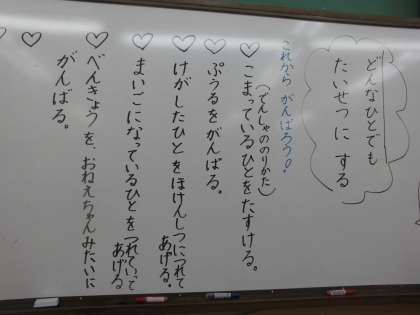 どんなひとでも
たいせつに する
これから がんばろう!
♡こまっているひとをたすける。
(でんしゃののりかた)
♡ぷうるをがんばる。
♡けがしたひとをほけんしつにつれて
あげる。
♡まいごになっているひとをつれていって
あげる
♡べんきょうを、おねえちゃんみたいに
がんばる。
♡